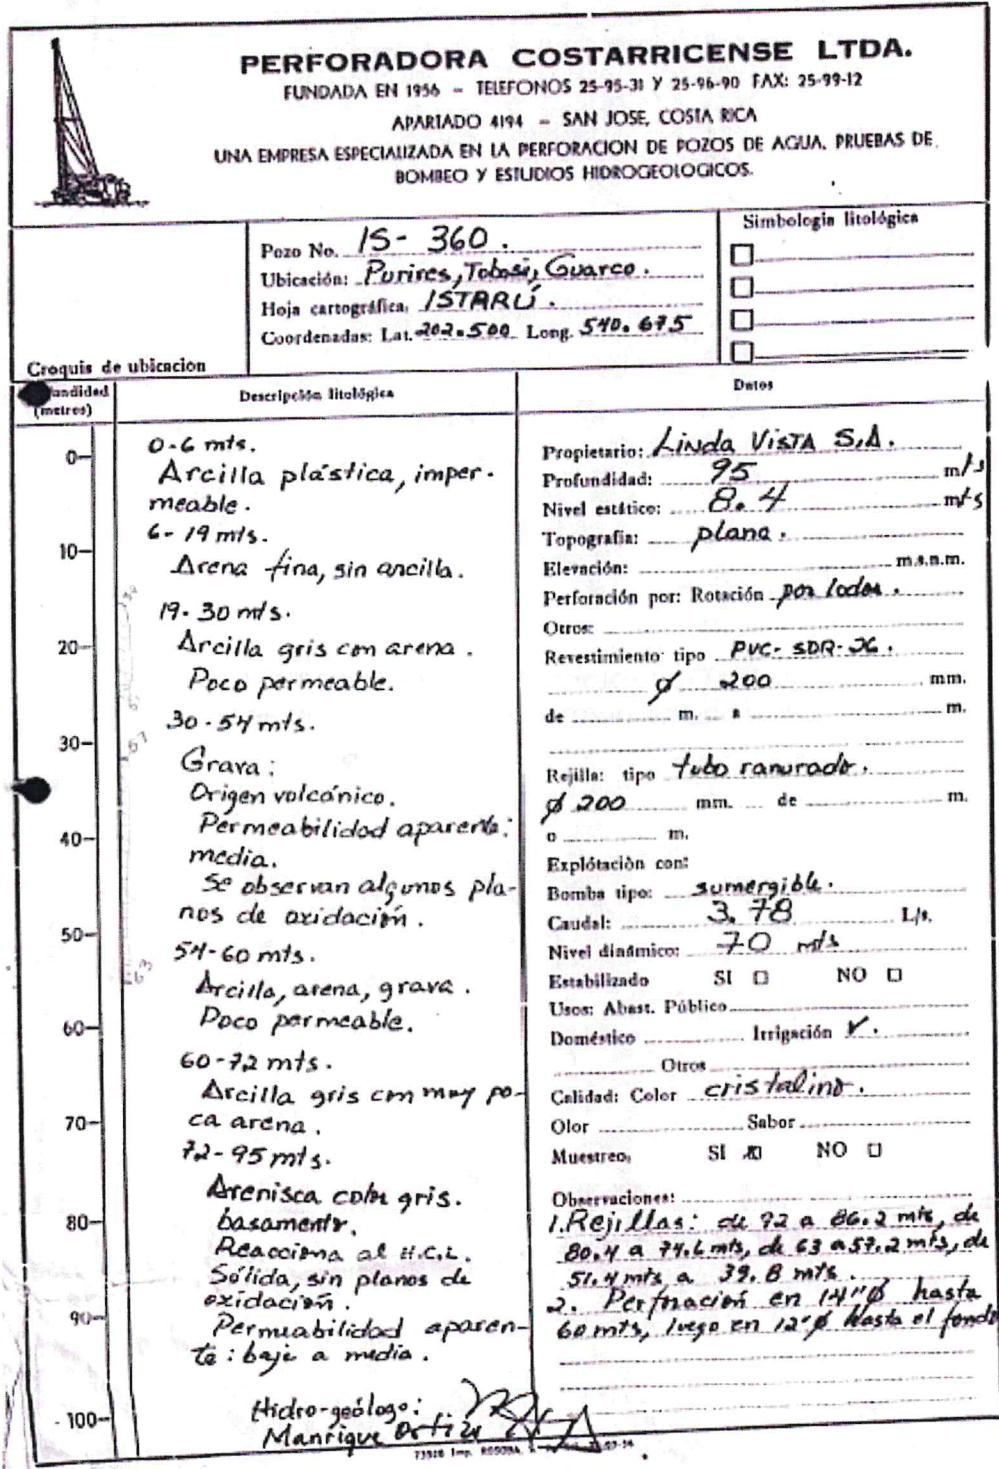 PERFORADORA COSTARRICENSE LTDA.
FUNDADA EN 1956 - TELEFONOS 25-95-31 Y 25-96-90 FAX: 25-99-12
APARTADO 4194 - SAN JOSE, COSTA RICA
UNA EMPRESA ESPECIALIZADA EN LA PERFORACION DE POZOS DE AGUA, PRUEBAS DE
BOMBEO Y ESTUDIOS HIDROGEOLOGICOS.
Croquis de ubicacion
Pozo No. IS-360.
Ubicación: Purires, Tobosi, Guarco.
Hoja cartográfica. ISTARÚ.
Coordenadas: Lat. 202.500 Long. 540.675
Simbología litológica
undidad
(metros)
0
10
20
30
40
50
60
70
80
90
100
Descripción litológica
0-6 mts.
Arcilla plástica, imper-
meable.
6-19 mts.
Arena fina, sin arcilla.
19-30 mts.
Arcilla gris con arena.
Poco permeable.
30-54 mts.
Grava:
Origen volcánico.
Permeabilidad aparente:
media.
Se observan algunos pla-
nos de oxidación.
54-60 mts.
Arcilla, arena, grava.
Poco permeable.
60-72 mts.
Arcilla gris con muy po-
ca arena.
72-95 mts.
Arenisca color gris.
basamento.
Reacciona al H.C.L.
Sólida, sin planos de
oxidación.
Permeabilidad aparen-
te: baja a media.
Hidro-geólogo:
Manrique Ortiz
Datos
Propietario: Linda Vista S.A.
Profundidad: 95 mts
Nivel estático: 8.4 mts
Topografía: plana.
Elevación: m.s.n.m.
Perforación por: Rotación por lodos.
Otros:
Revestimiento tipo PVC-SDR-26.
ø 200 mm.
de m. a m.
Rejilla: tipo tubo ranurado.
ø 200 mm. de m.
a m.
Explotación con:
Bomba tipo: sumergible.
Caudal: 3.78 L/s.
Nivel dinámico: 70 mts
Estabilizado SI NO
Usos: Abast. Público
Doméstico Irrigación ✓.
Otros
Calidad: Color cristalino.
Olor Sabor
Muestreo, SI ☒ NO
Observaciones:
1. Rejillas: de 92 a 86.2 mts, de
80.4 a 74.6 mts, de 63 a 57.2 mts, de
51.4 mts a 39.8 mts.
2. Perforación en 14"ø hasta
60 mts, luego en 12"ø hasta el fondo